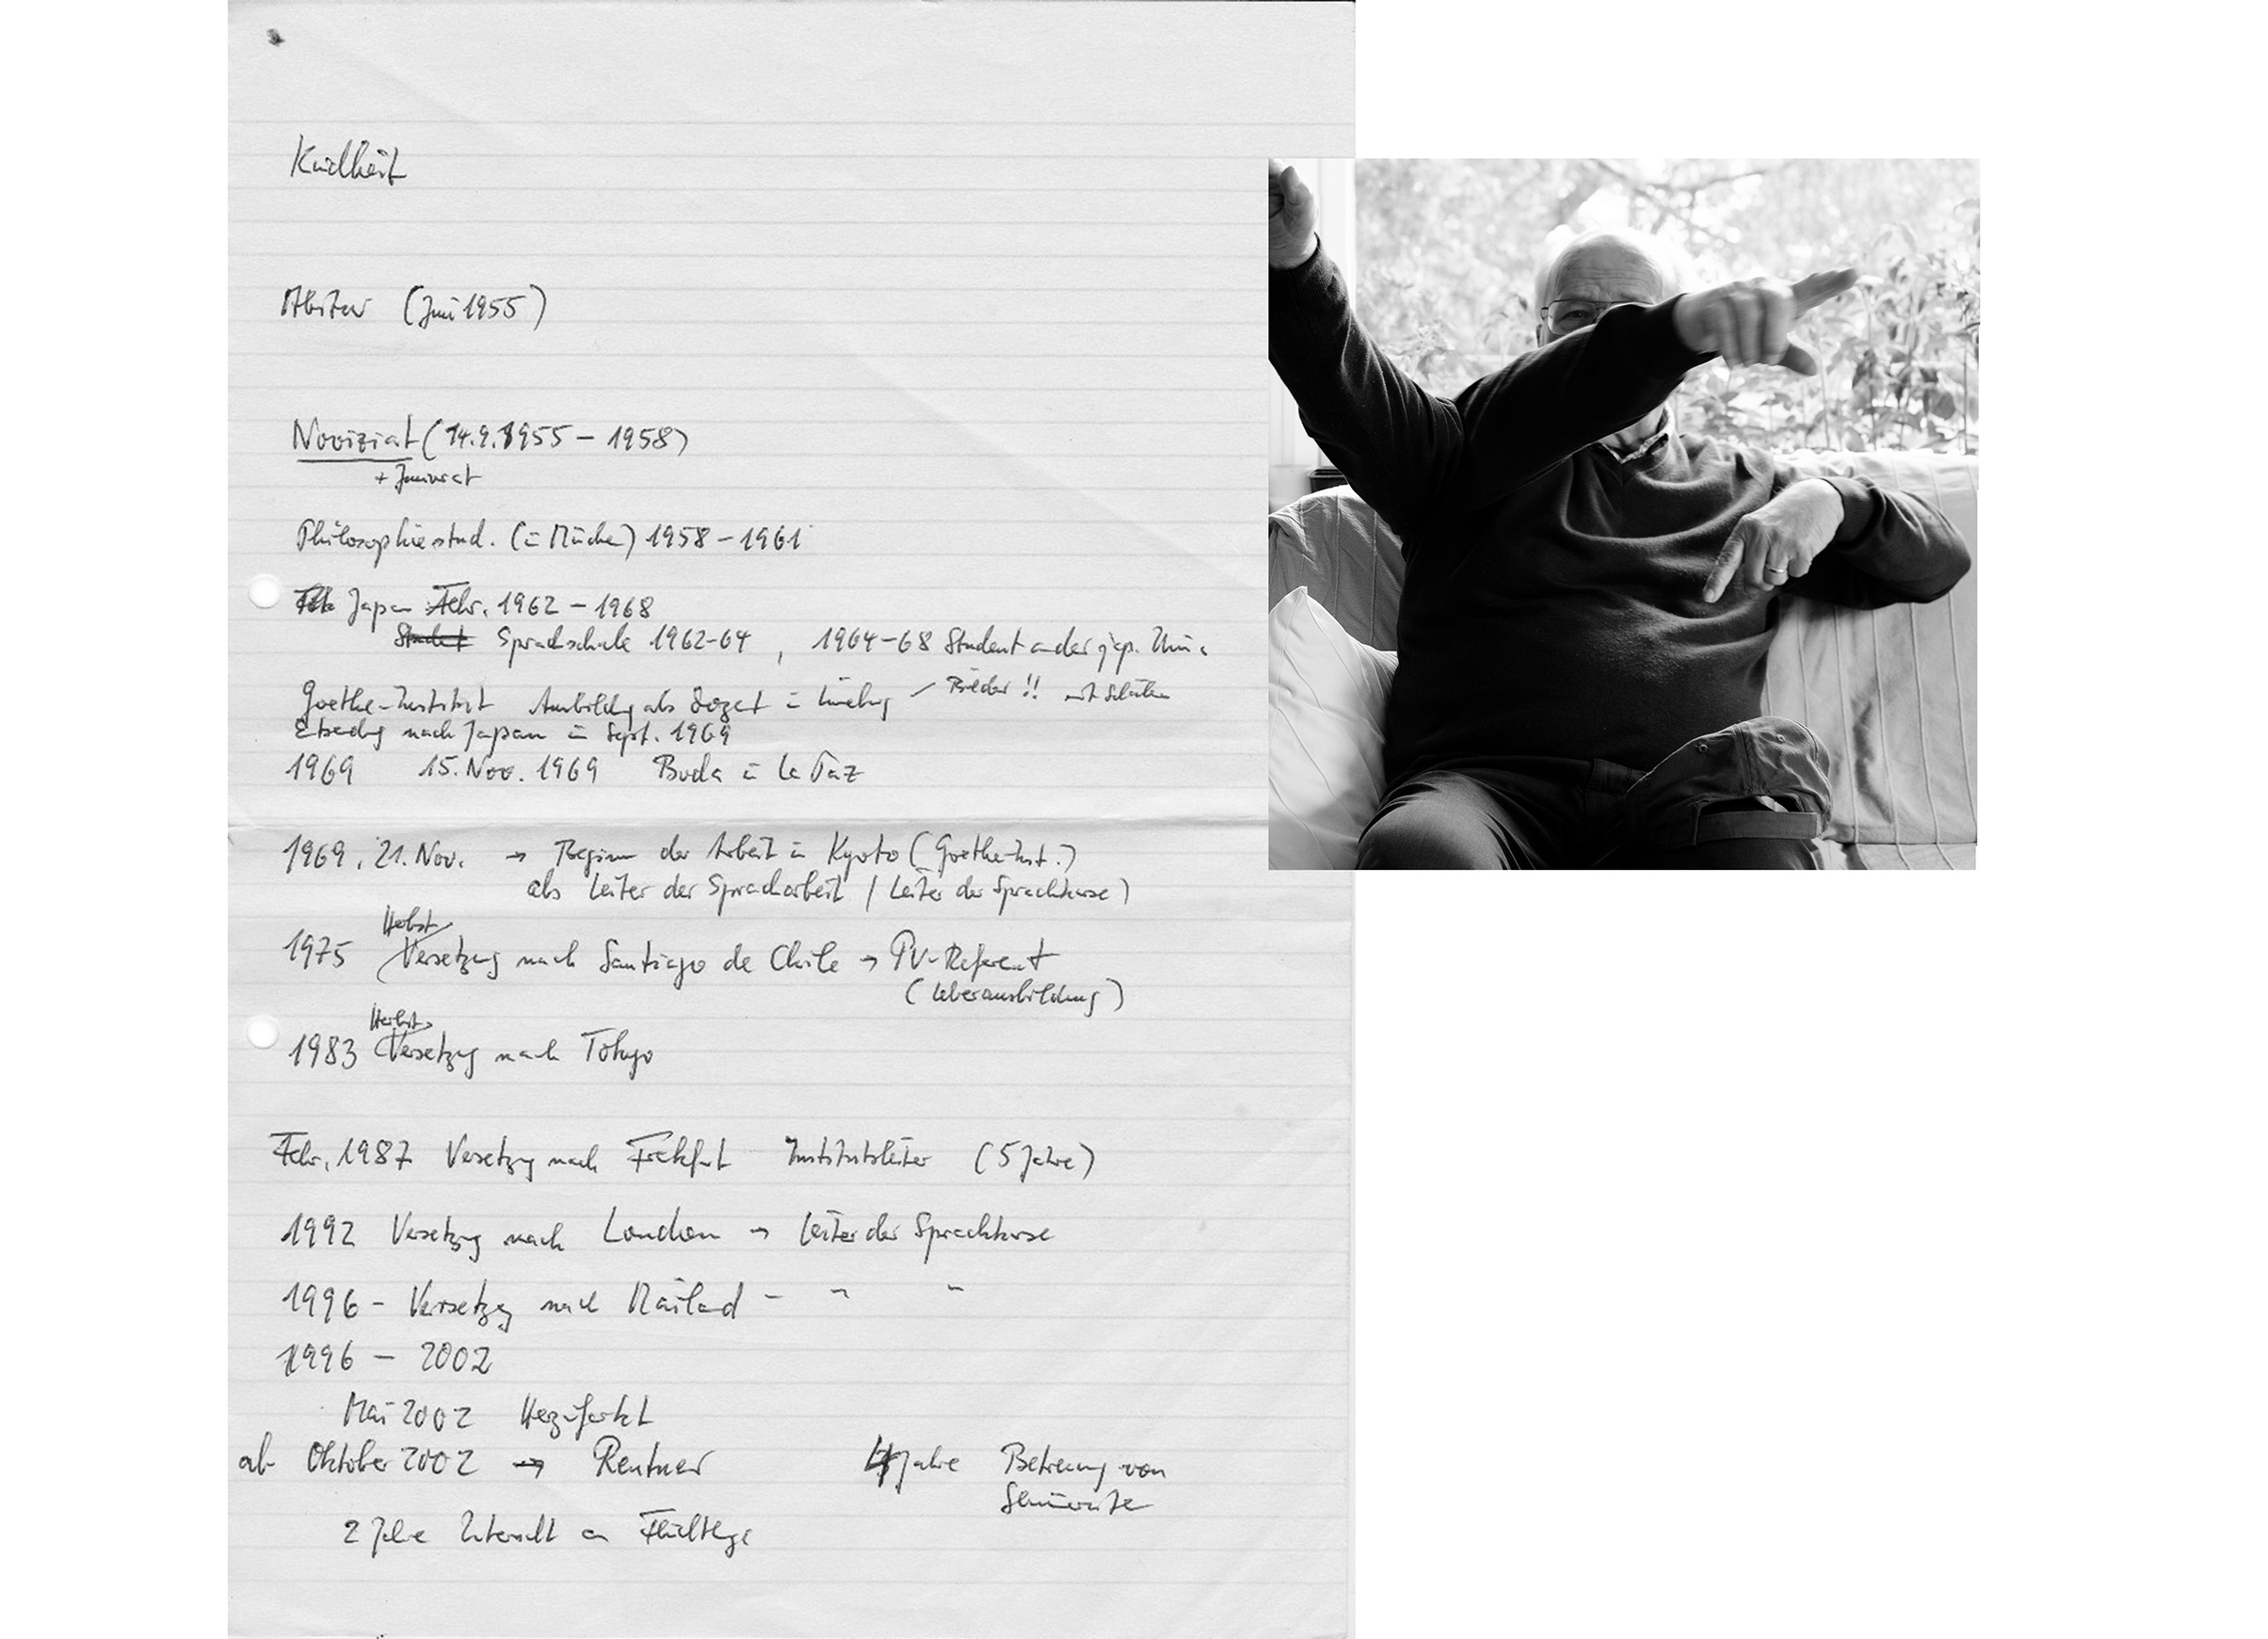 Kindheit
Abitur (Juni 1955)
Noviziat (14.9.1955 – 1958)
+ Juniorat
Philosophiestud. (in München) 1958 – 1961
Japan Febr. 1962 – 1968
Student Sprachschule 1962-64 , 1964-68 Student an der jap. Uni.
Goethe-Institut Ausbildung als Dozent in Lüneburg / Bilder !! mit Schülern
nach Japan in Sept. 1969
1969 15. Nov. 1969 in La Paz
1969, 21. Nov. → Beginn der Arbeit in Kyoto (Goethe-Inst.)
als Leiter der Spracharbeit / Leiter der Sprachkurse)
Herbst
1975 Versetzung nach Santiago de Chile → PV-Referent
(Lehrerausbildung)
Herbst
1983 Versetzung nach Tokyo
Febr. 1987 Versetzung nach Frankfurt Institutsleiter (5 Jahre)
1992 Versetzung nach London → Leiter der Sprachkurse
1996 – Versetzung nach Mailand – " "
1996 – 2002
Mai 2002 Herzinfarkt
ab Oktober 2002 → Rentner 4 Jahre Betreuung von
2 Jahre Unterricht an Flüchtlinge